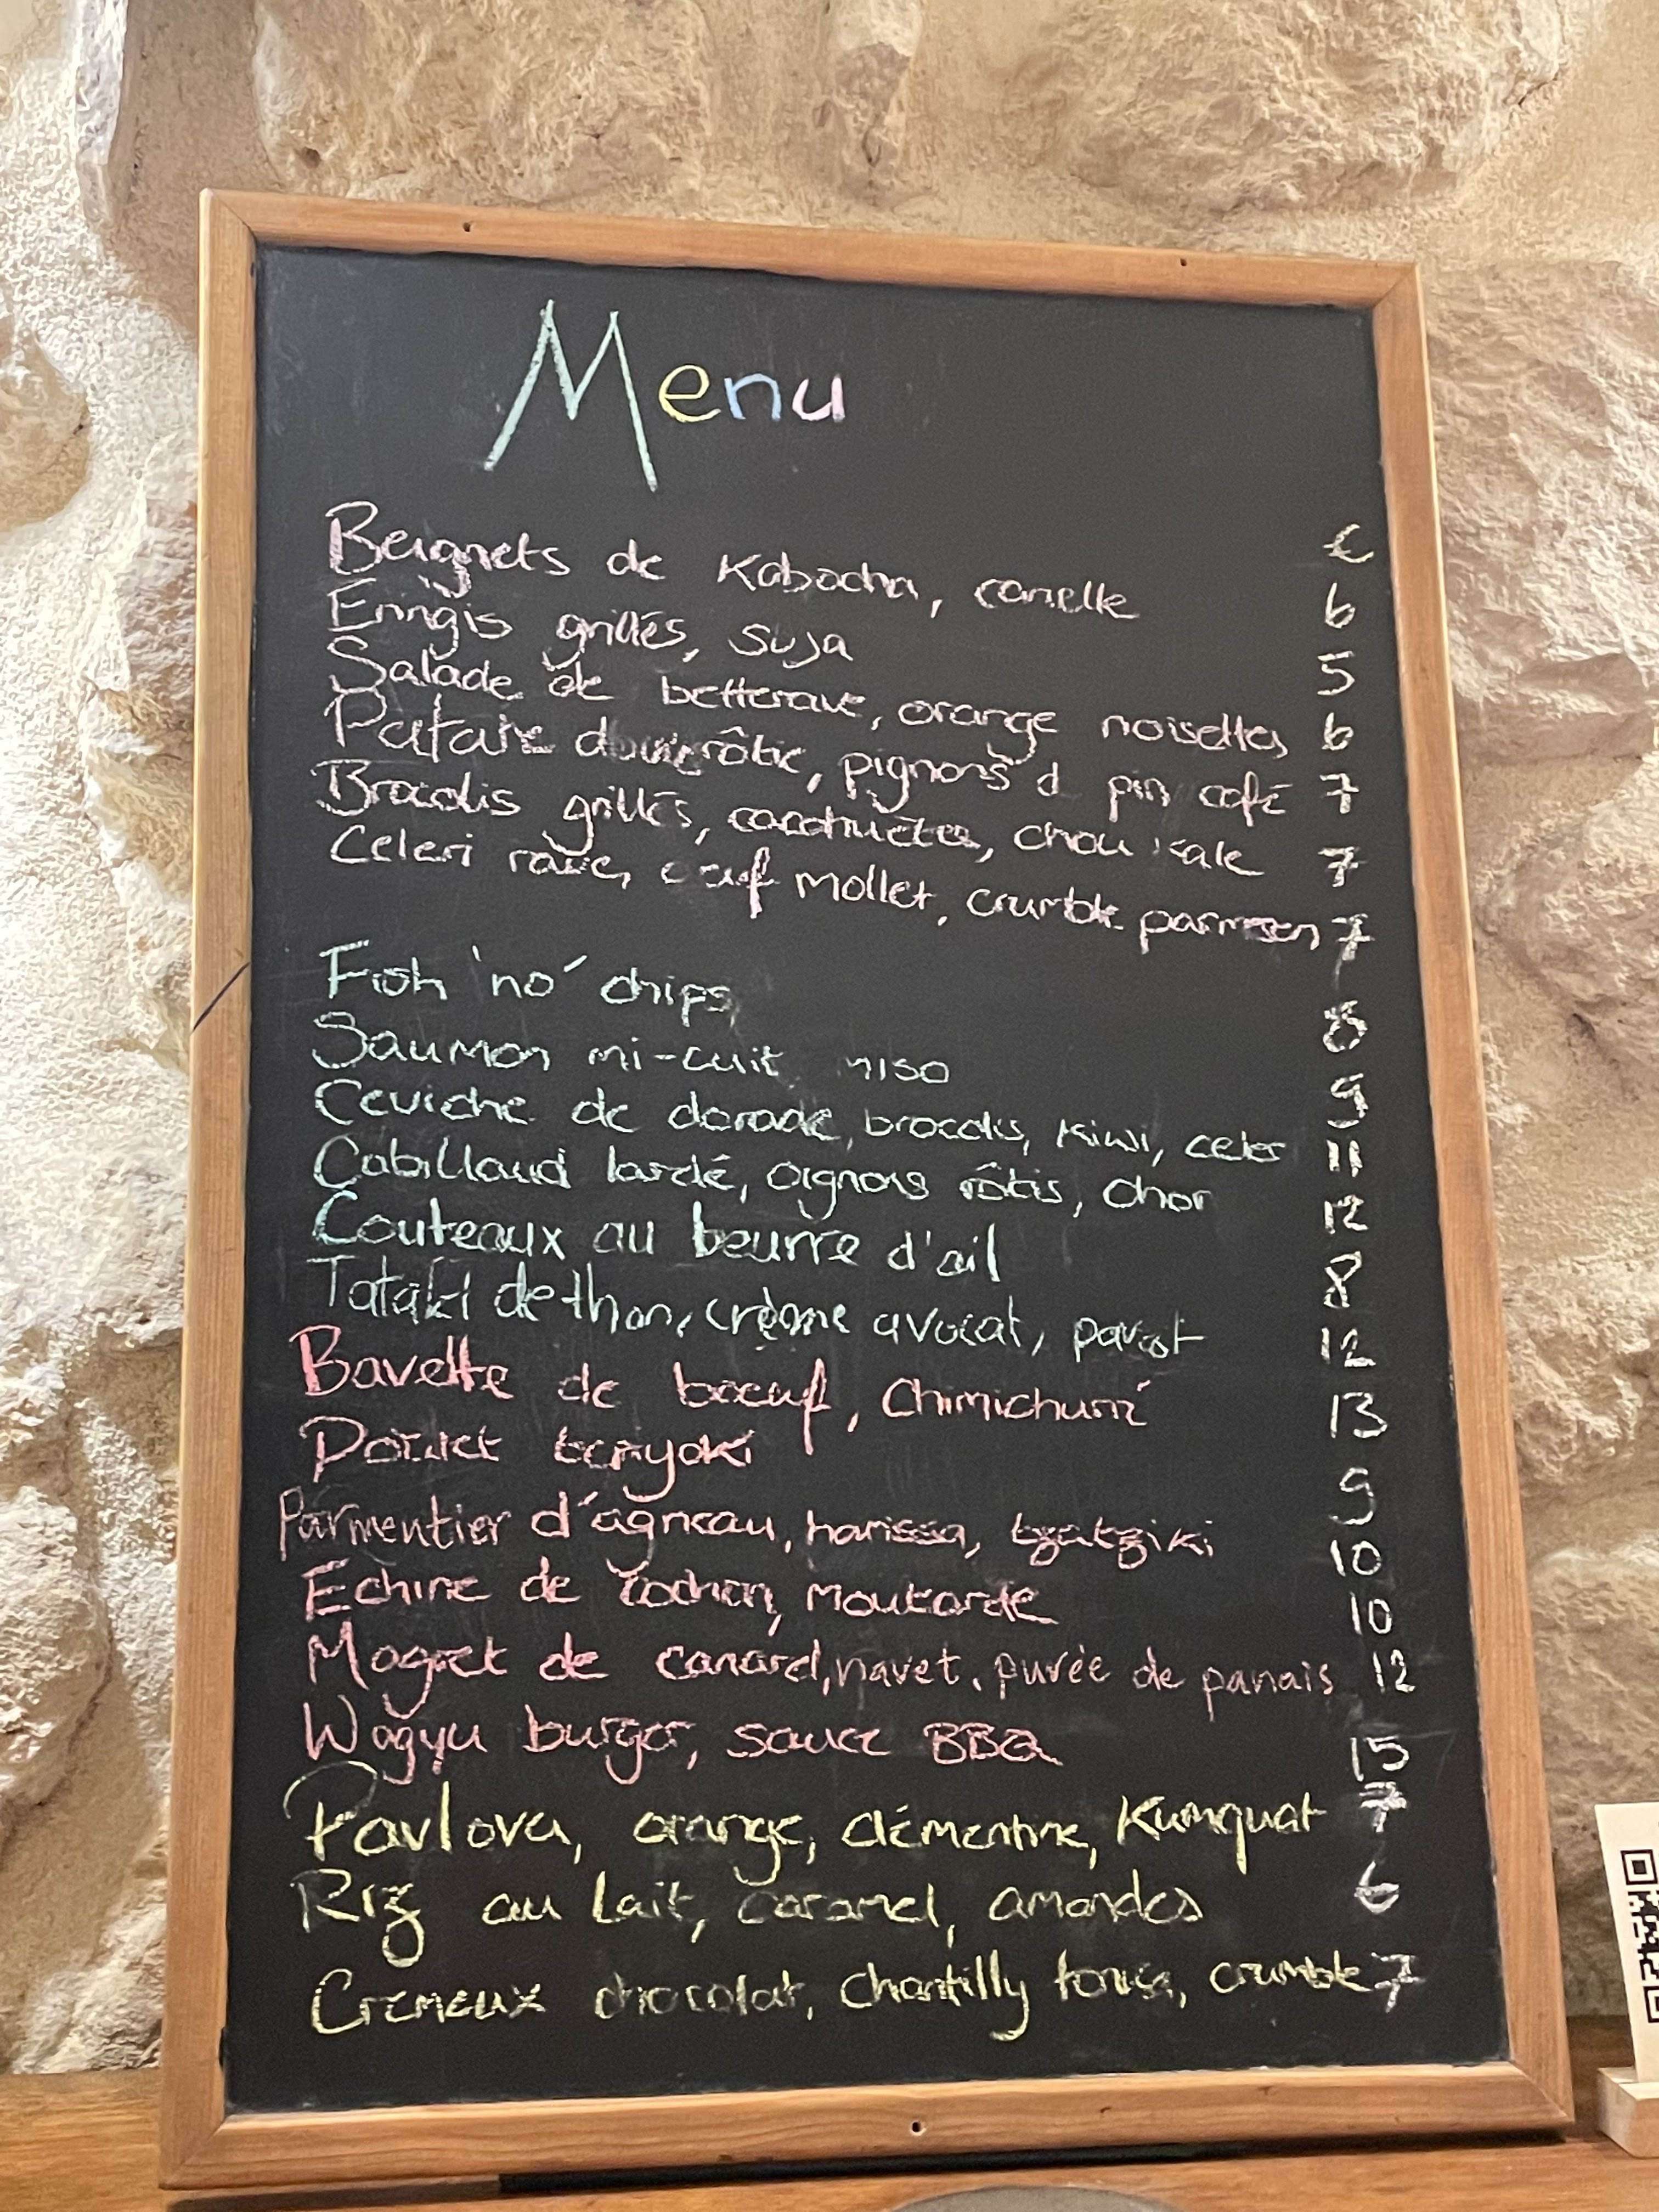 Menu
€
Beignets de Kabocha, canelle 6
Eringis grillés, suya 5
Salade de betterave, orange noisettes 6
Patate douce rôtie, pignons d pin café 7
Brocolis grillés, cacahuètes, chou kale 7
Celeri rave, oeuf mollet, crumble parmesan 7
Fish 'no' chips 8
Saumon mi-cuit miso 9
Ceviche de dorade, brocolis, kiwi, celeri 11
Cabillaud lardé, oignons rôtis, 12
Couteaux au beurre d'ail 8
Tataki de thon, crème avocat, pavot 12
Bavette de boeuf, Chimichurri 13
Poulet teriyaki 9
Parmentier d'agneau, harissa, tzatziki 10
Echine de cochon, moutarde 10
Magret de canard, navet, purée de panais 12
Wagyu burger, sauce BBQ 15
Pavlova, orange, clémentine, Kumquat 7
Riz au Lait, caramel, amandes 6
Cremeux chocolat, chantilly tonka, crumble 7